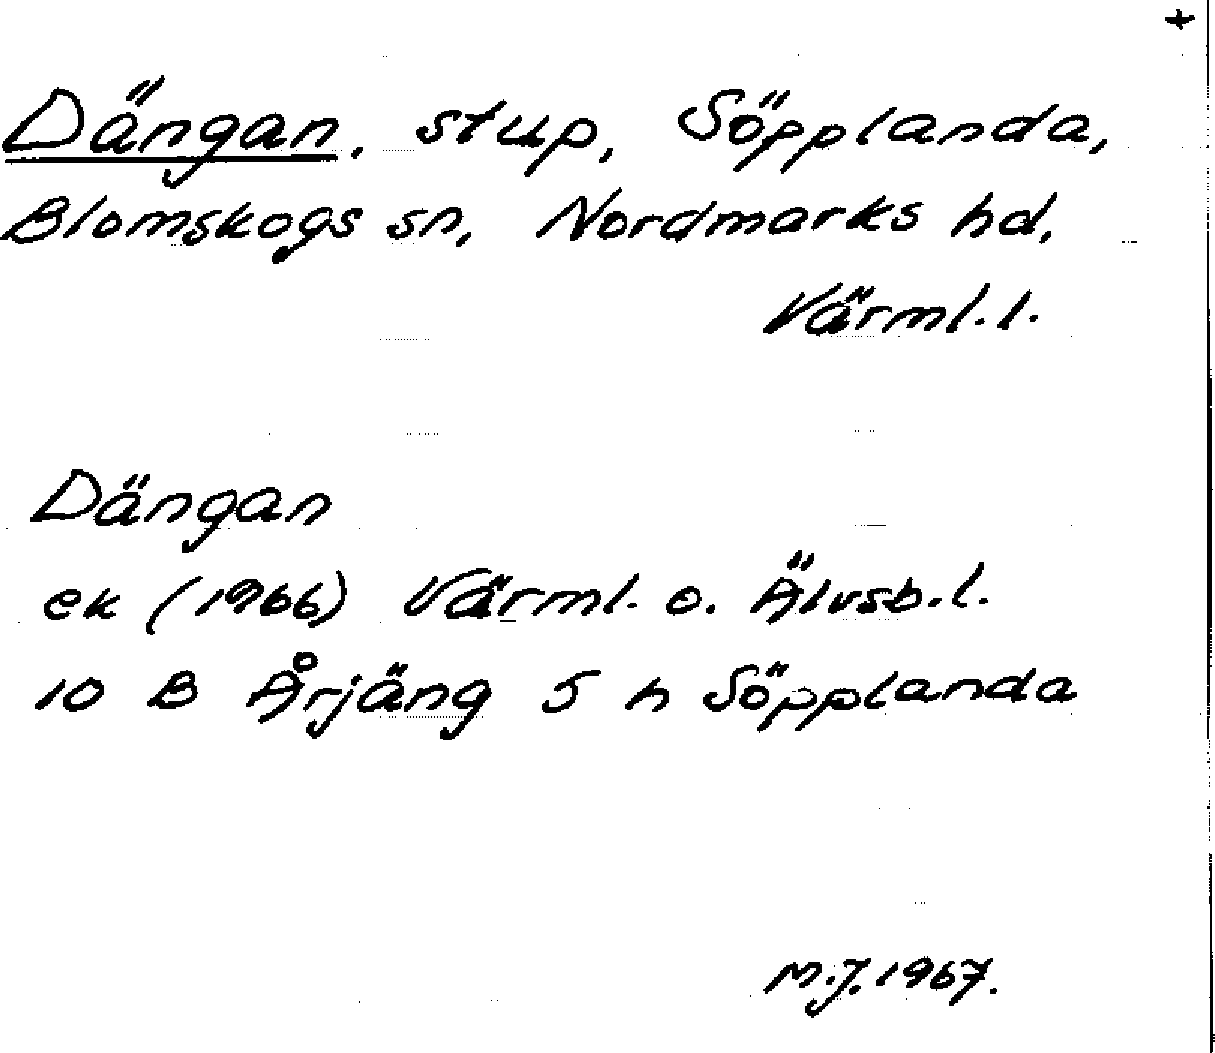 +
Dängan, stup, Söpplanda,
Blomskogs sn, Nordmarks hd,
Värml. l.
Dängan
ek (1966) Värml. o. Älvsb. l.
10 B Årjäng 5 h Söpplanda
M.J. 1967.